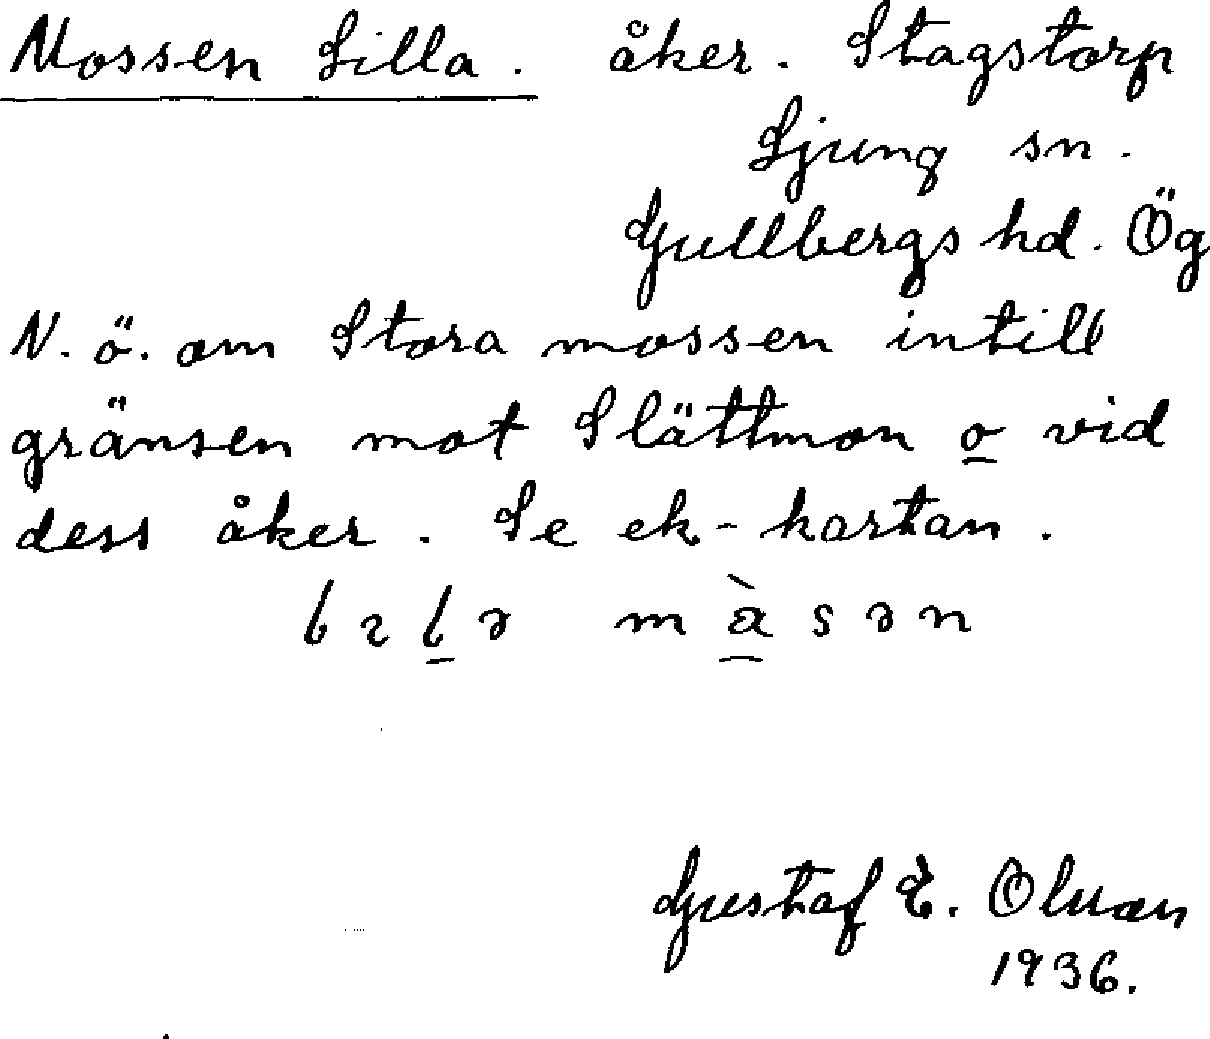 Mossen Lilla. åker. Stagstorp
Ljung sn.
Gullbergs hd. Ög
N. ö. om Stora mossen intill
gränsen mot Slättmon o vid
dess åker. Se ek-kartan.
Gustaf E. Olsson
1936.